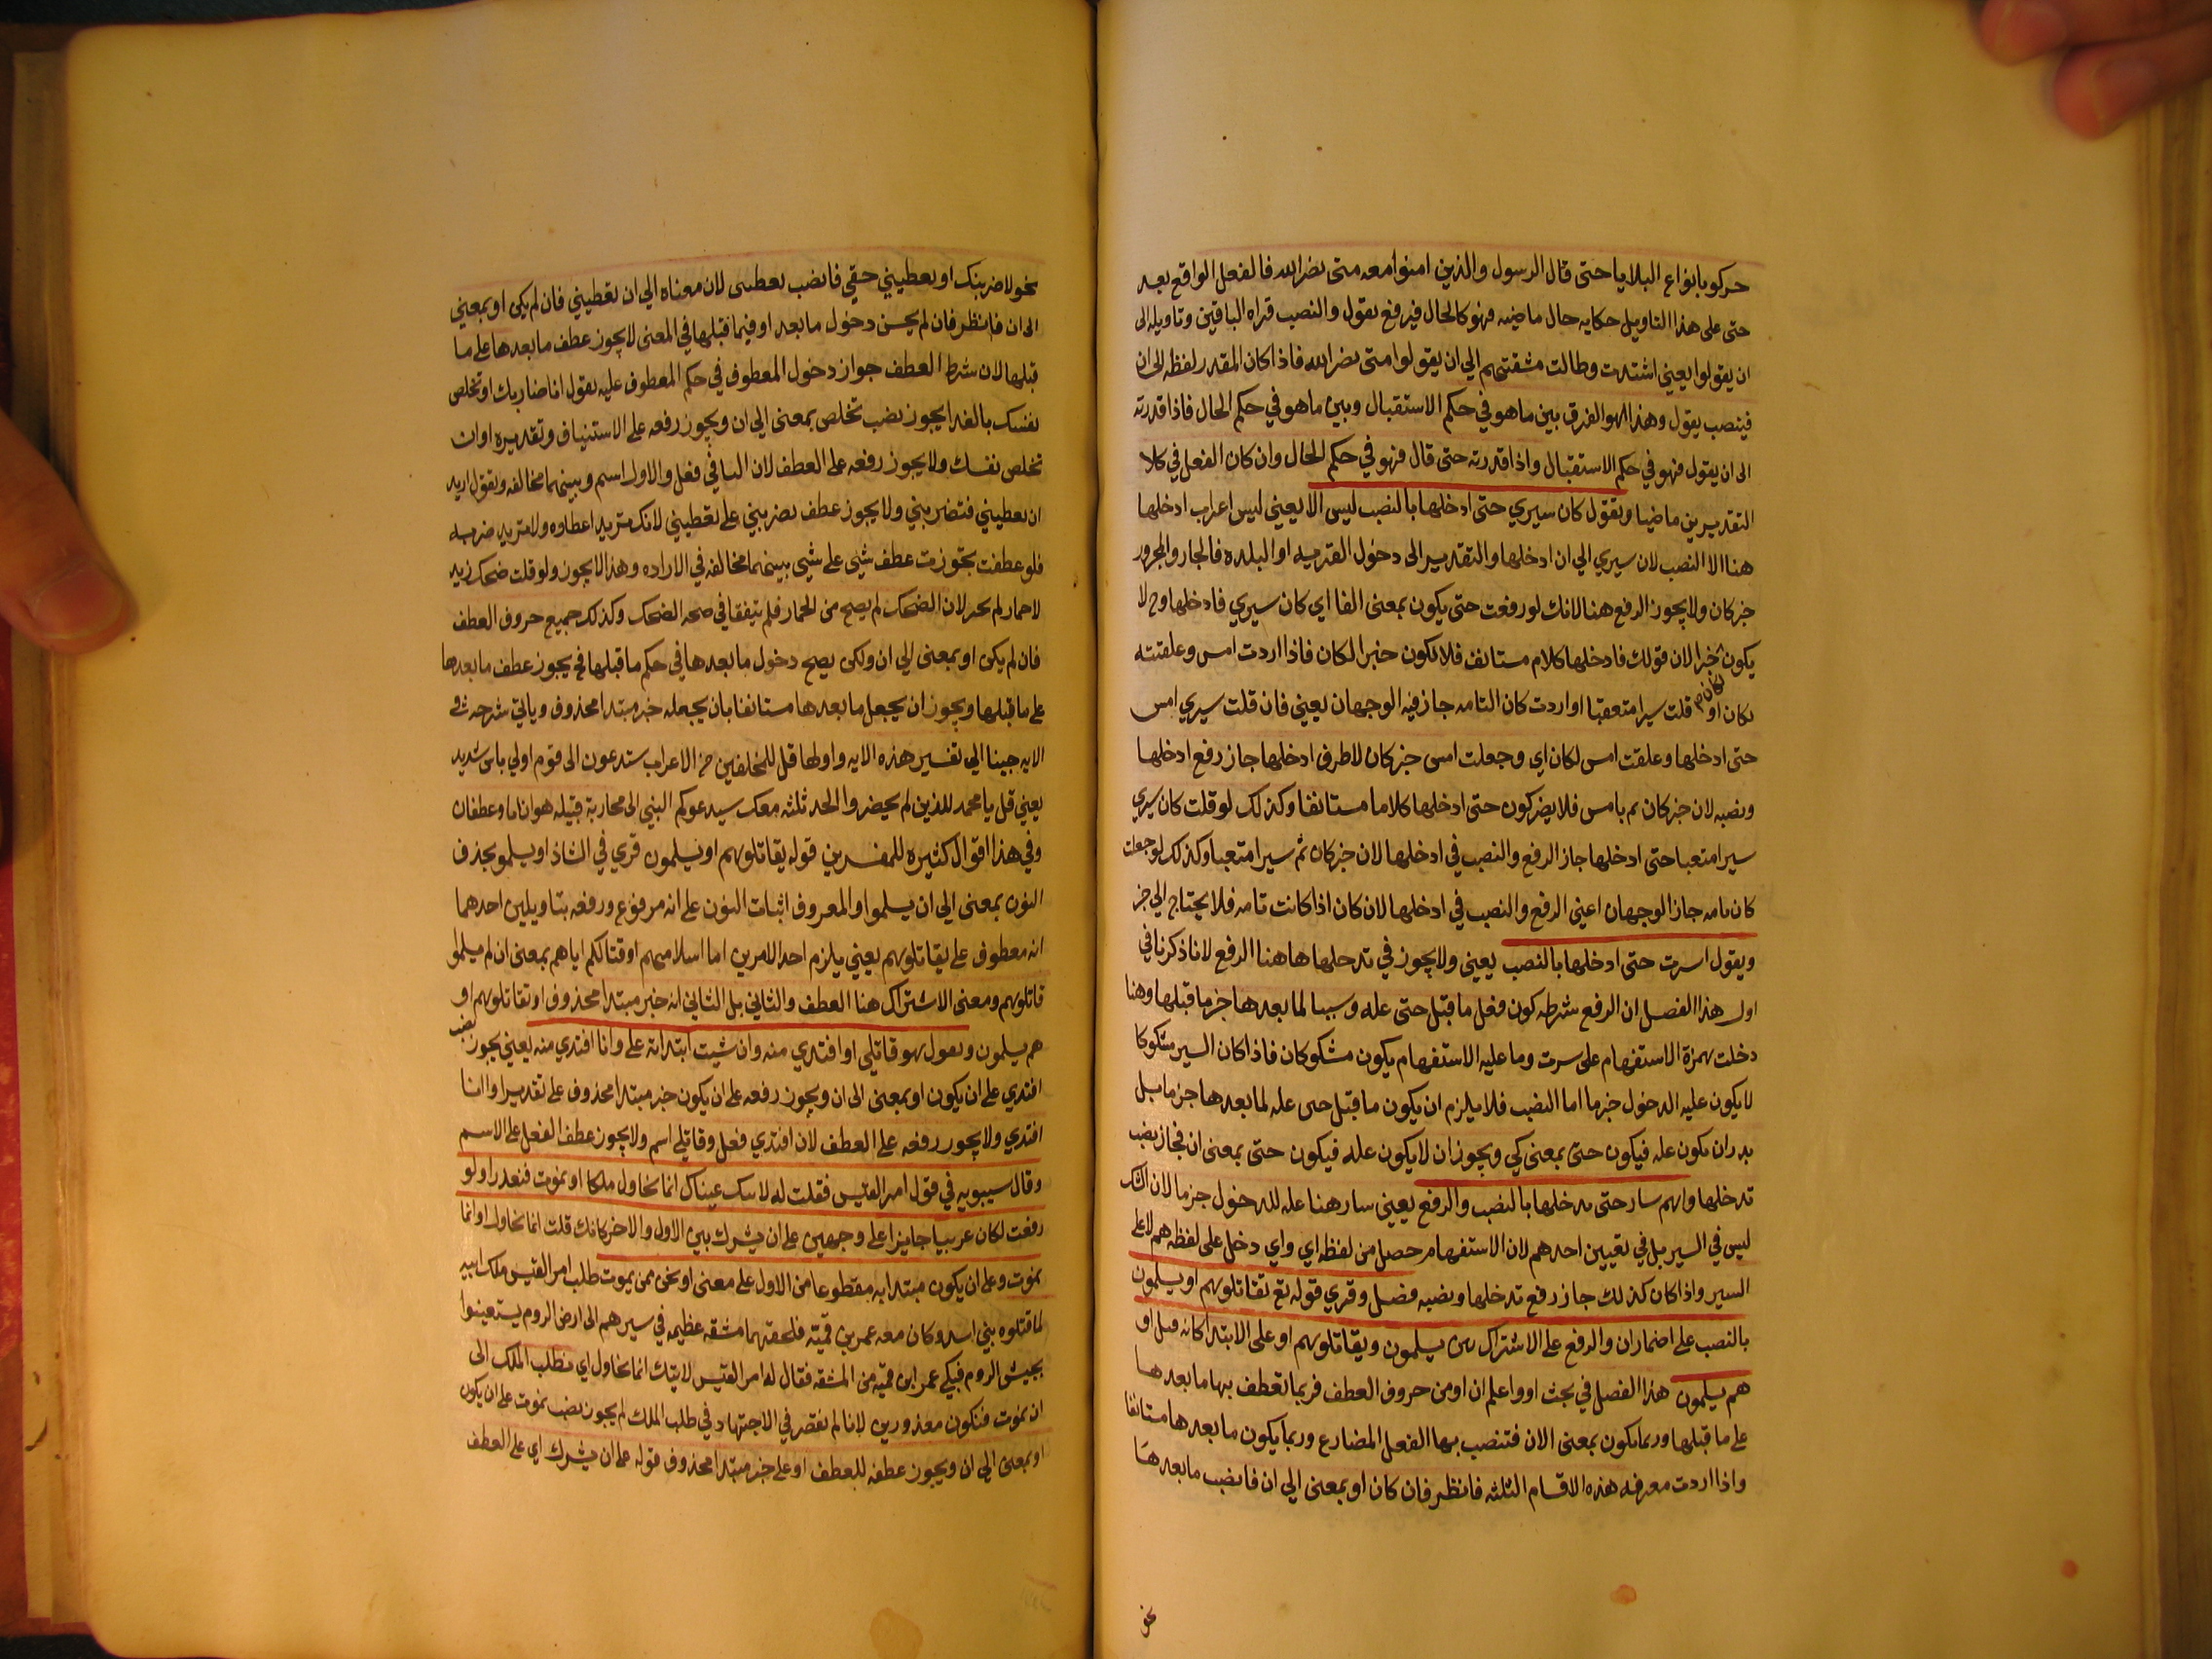 حركوا بانواع البلايا حتى قال الرسول والذين امنوا معه متى نصر الله فالفعل الواقع بعد
حتى على هذا التاويل حكايه حال ماضيه فهو كالحال فيرفع يقول والنصب قراه الباقين وتاويله الى
ان يقولوا يعني اشتدت وطالت مشقتهم الي ان يقولوا متى نصر الله فاذا كان المقدر لفظه الى ان
فينصب يقول وهذا هو الفرق بين ما هو في حكم الاستقبال وبين ما هو في حكم الحال فاذا قدرته
الى ان يقول فهو في حكم الاستقبال واذا قدرته حتى قال فهو في حكم الحال وان كان الفعل في كلا
التقديرين ماضيا وتقول كان سيري حتى ادخلها بالنصب ليس الا يعني ليس اعراب ادخلها
هنا الا النصب لان سيري الي ان ادخلها والتقدير الى دخول القريه او البلده فالجار والمجرور
خبر كان ولا يجوز الرفع هنا لانك لو رفعت حتى يكون بمعنى الفا اي كان سيري فادخلها وح لا
يكون خبرا لان قولك فادخلها كلام مستانف فلا يكون خبرا لكان فاذا اردت امس وعلقته
بكان او قلت سيرا متعبا او اردت كان التامه جاز فيه الوجهان يعني فان قلت سيري امس
حتى ادخلها وعلقت امس لكان اي وجعلت امس خبر كان لا ظرف ادخلها جاز رفع ادخلها
ونصبه لان خبر كان تم بامس فلا يضر كون حتى ادخلها كلاما مستانفا وكذلك لو قلت كان سيري
سيرا متعبا حتى ادخلها جاز الرفع والنصب في ادخلها لان خبر كان تم سيرا متعبا وكذلك لو جعلت
كان تامه جاز الوجهان اعني الرفع والنصب في ادخلها لان كان اذا كانت تامه فلا يحتاج الي خبر
ويقول اسرت حتى ادخلها بالنصب يعني ولا يجوز في تدخلها هاهنا الرفع لانا ذكرنا في
اول هذا الفصل ان الرفع شرطه كون فعل ما قبل حتى عله وسببا لما بعدها خبر ما قبلها وهنا
دخلت همزة الاستفهام على سرت وما عليه الاستفهام يكون مشكوكا فاذا كان السير مشكوكا
لا يكون عليه الدخول خبرها اما النصب فلا يلزم ان يكون ما قبل حتى عله لما بعدها خبر ما بل
يكون عله فيكون حتى بمعنى كي ويجوز ان لا يكون عله فيكون حتى بمعنى ان فجاز نصب
تدخلها وايهم سار حتى يدخلها بالنصب والرفع يعني سار هنا عله للدخول خبرما لان الشك
ليس في السير بل في تعيين احدهم لان الاستفهام حصل من لفظه اي واي دخل على لفظه هم لا على
السير واذا كان كذلك جاز رفع تدخلها ونصبه فصل وقري قوله تع تقاتلونهم او يسلمون
بالنصب على اضمار ان والرفع على الاشتراك بين يسلمون ويقاتلونهم او على الابتدا كانه قيل او
هم يسلمون هذا الفصل في بحث او واعلم ان او من حروف العطف فربما تعطف بها ما بعدها
على ما قبلها وربما يكون بمعنى الان فتنصب بها الفعل المضارع وربما يكون ما بعدها مستانفا
واذا اردت معرفه هذه الاقسام الثلثه فانظر فان كان او بمعنى الي ان فانصب ما بعدها
نحو
نحو لاضربنك او تعطيني حقي فانصب تعطيني لان معناه الي ان تعطيني فان لم يكن او بمعني
الى ان فانظر فان لم يحسن دخول ما بعد او فيما قبلها في المعنى لا يجوز عطف ما بعدها على ما
قبلها لان شرط العطف جواز دخول المعطوف في حكم المعطوف عليه يقول انا ضاربك او تخلص
نفسك بالغدا يجوز نصب تخلص بمعنى الي ان ويجوز رفعه على الاستيناف وتقديره او ان
تخلص نفسك ولا يجوز رفعه على العطف لان الباقي فعل والاول اسم وبينهما مخالفه وتقول اريد
ان تعطيني فتضربني ولا يجوز عطف تضربني على تعطيني لانك تريد اعطاوه ولا تريد ضربه
فلو عطفت تجوزت عطف شيى على شيى بينهما مخالفه في الاراده وهذا لا يجوز ولو قلت ضحك زيد
لا حمار لم يجز لان الضحك لم يصح من الحمار فلم يتفقا في صحه الضحك وكذلك جميع حروف العطف
فان لم يكن او بمعنى الي ان ولكن يصح دخول ما بعدها في حكم ما قبلها فح يجوز عطف ما بعدها
على ما قبلها ويجوز ان يجعل ما بعدها مستانفا بان يجعله خبر مبتدا محذوف وياتي شرحه في
الايه جينا الي تفسير هذه الايه واولها قل للمخلفين من الاعراب ستدعون الى قوم اولي باس شديد
يعني قل يا محمد للذين لم يحضروا الحد ثلثه معك سيدعوكم النبي الى محاربة قبيله هوانا وعطفان
وفي هذا اقوال كثيره للمفسرين قوله يقاتلونهم او يسلمون قري في الشاذ او يسلمو بحذف
النون بمعنى الي ان يسلموا والمعروف اثبات النون على انه مرفوع ورفعه بتاويلين احدهما
انه معطوف على يقاتلونهم يعني يلزم احد الامرين اما اسلامهم او قتالكم اياهم بمعنى ان لم يسلموا
قاتلوهم ومعنى الاشتراك هنا العطف والثاني بل الثاني انه خبر مبتدا محذوف او تقاتلونهم او
هم يسلمون وتقول هو قاتلي او افتدي منه وان شيت ابتداته على وانا افتدي منه يعني يجوز نصب
افتدي على ان يكون او بمعنى الى ان ويجوز رفعه على ان يكون خبر مبتدا محذوف على تقدير او انا
افتدي ولا يجوز رفعه على العطف لان افتدي فعل وقاتلي اسم ولا يجوز عطف الفعل على الاسم
وقال سيبويه في قول امرا القيس فقلت له لا تبك عيناك انما نحاول ملكا او نموت فنعذرا ولو
رفعت لكان عربيا جايزا على وجهين على ان يشرك بين الاول والاخر كانك قلت انما نحاول او انما
نموت وعلى ان يكون مبتدا به مقطوعا من الاول على معنى او نحن ممن يموت طلب امرا القيس ملك ابيه
لما قتلوه بني اسد وكان معه عمر بن قميته فلحقتهما مشقه عظيمه في سيرهم الى ارض الروم يستعينوا
بجيش الروم فبكي عمر ابن قميه من المشقه فقال له امر القيس لا تبك انما نحاول اي نطلب الملك الى
ان نموت فنكون معذورين لانا لم نقصر في الاجتهاد في طلب الملك لم يجوز نصب نموت على ان يكون
او بمعنى الي ان ويجوز عطفه للعطف او على خبر مبتدا محذوف قوله على ان يشرك اي على العطف